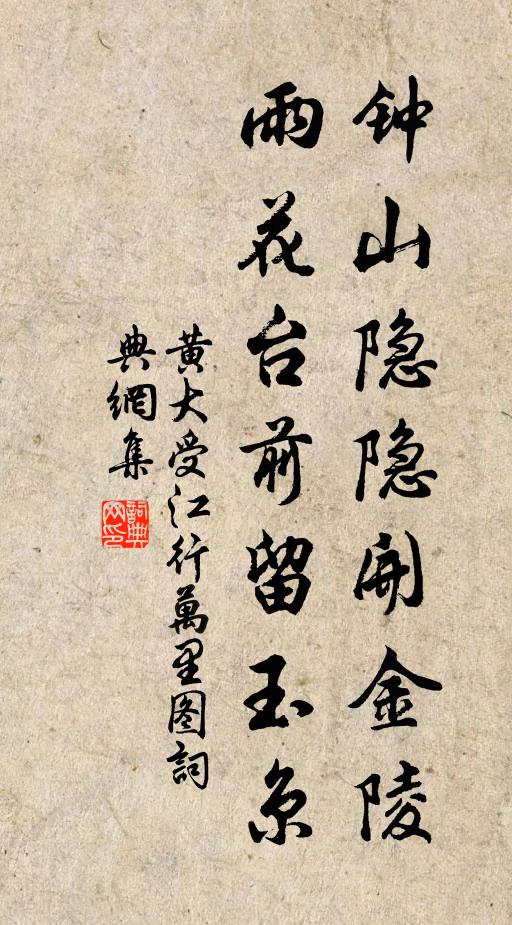 钟山隐隐开金陵
雨花台前留玉京
黄大受江行萬里图詞
典網集
詞典网印